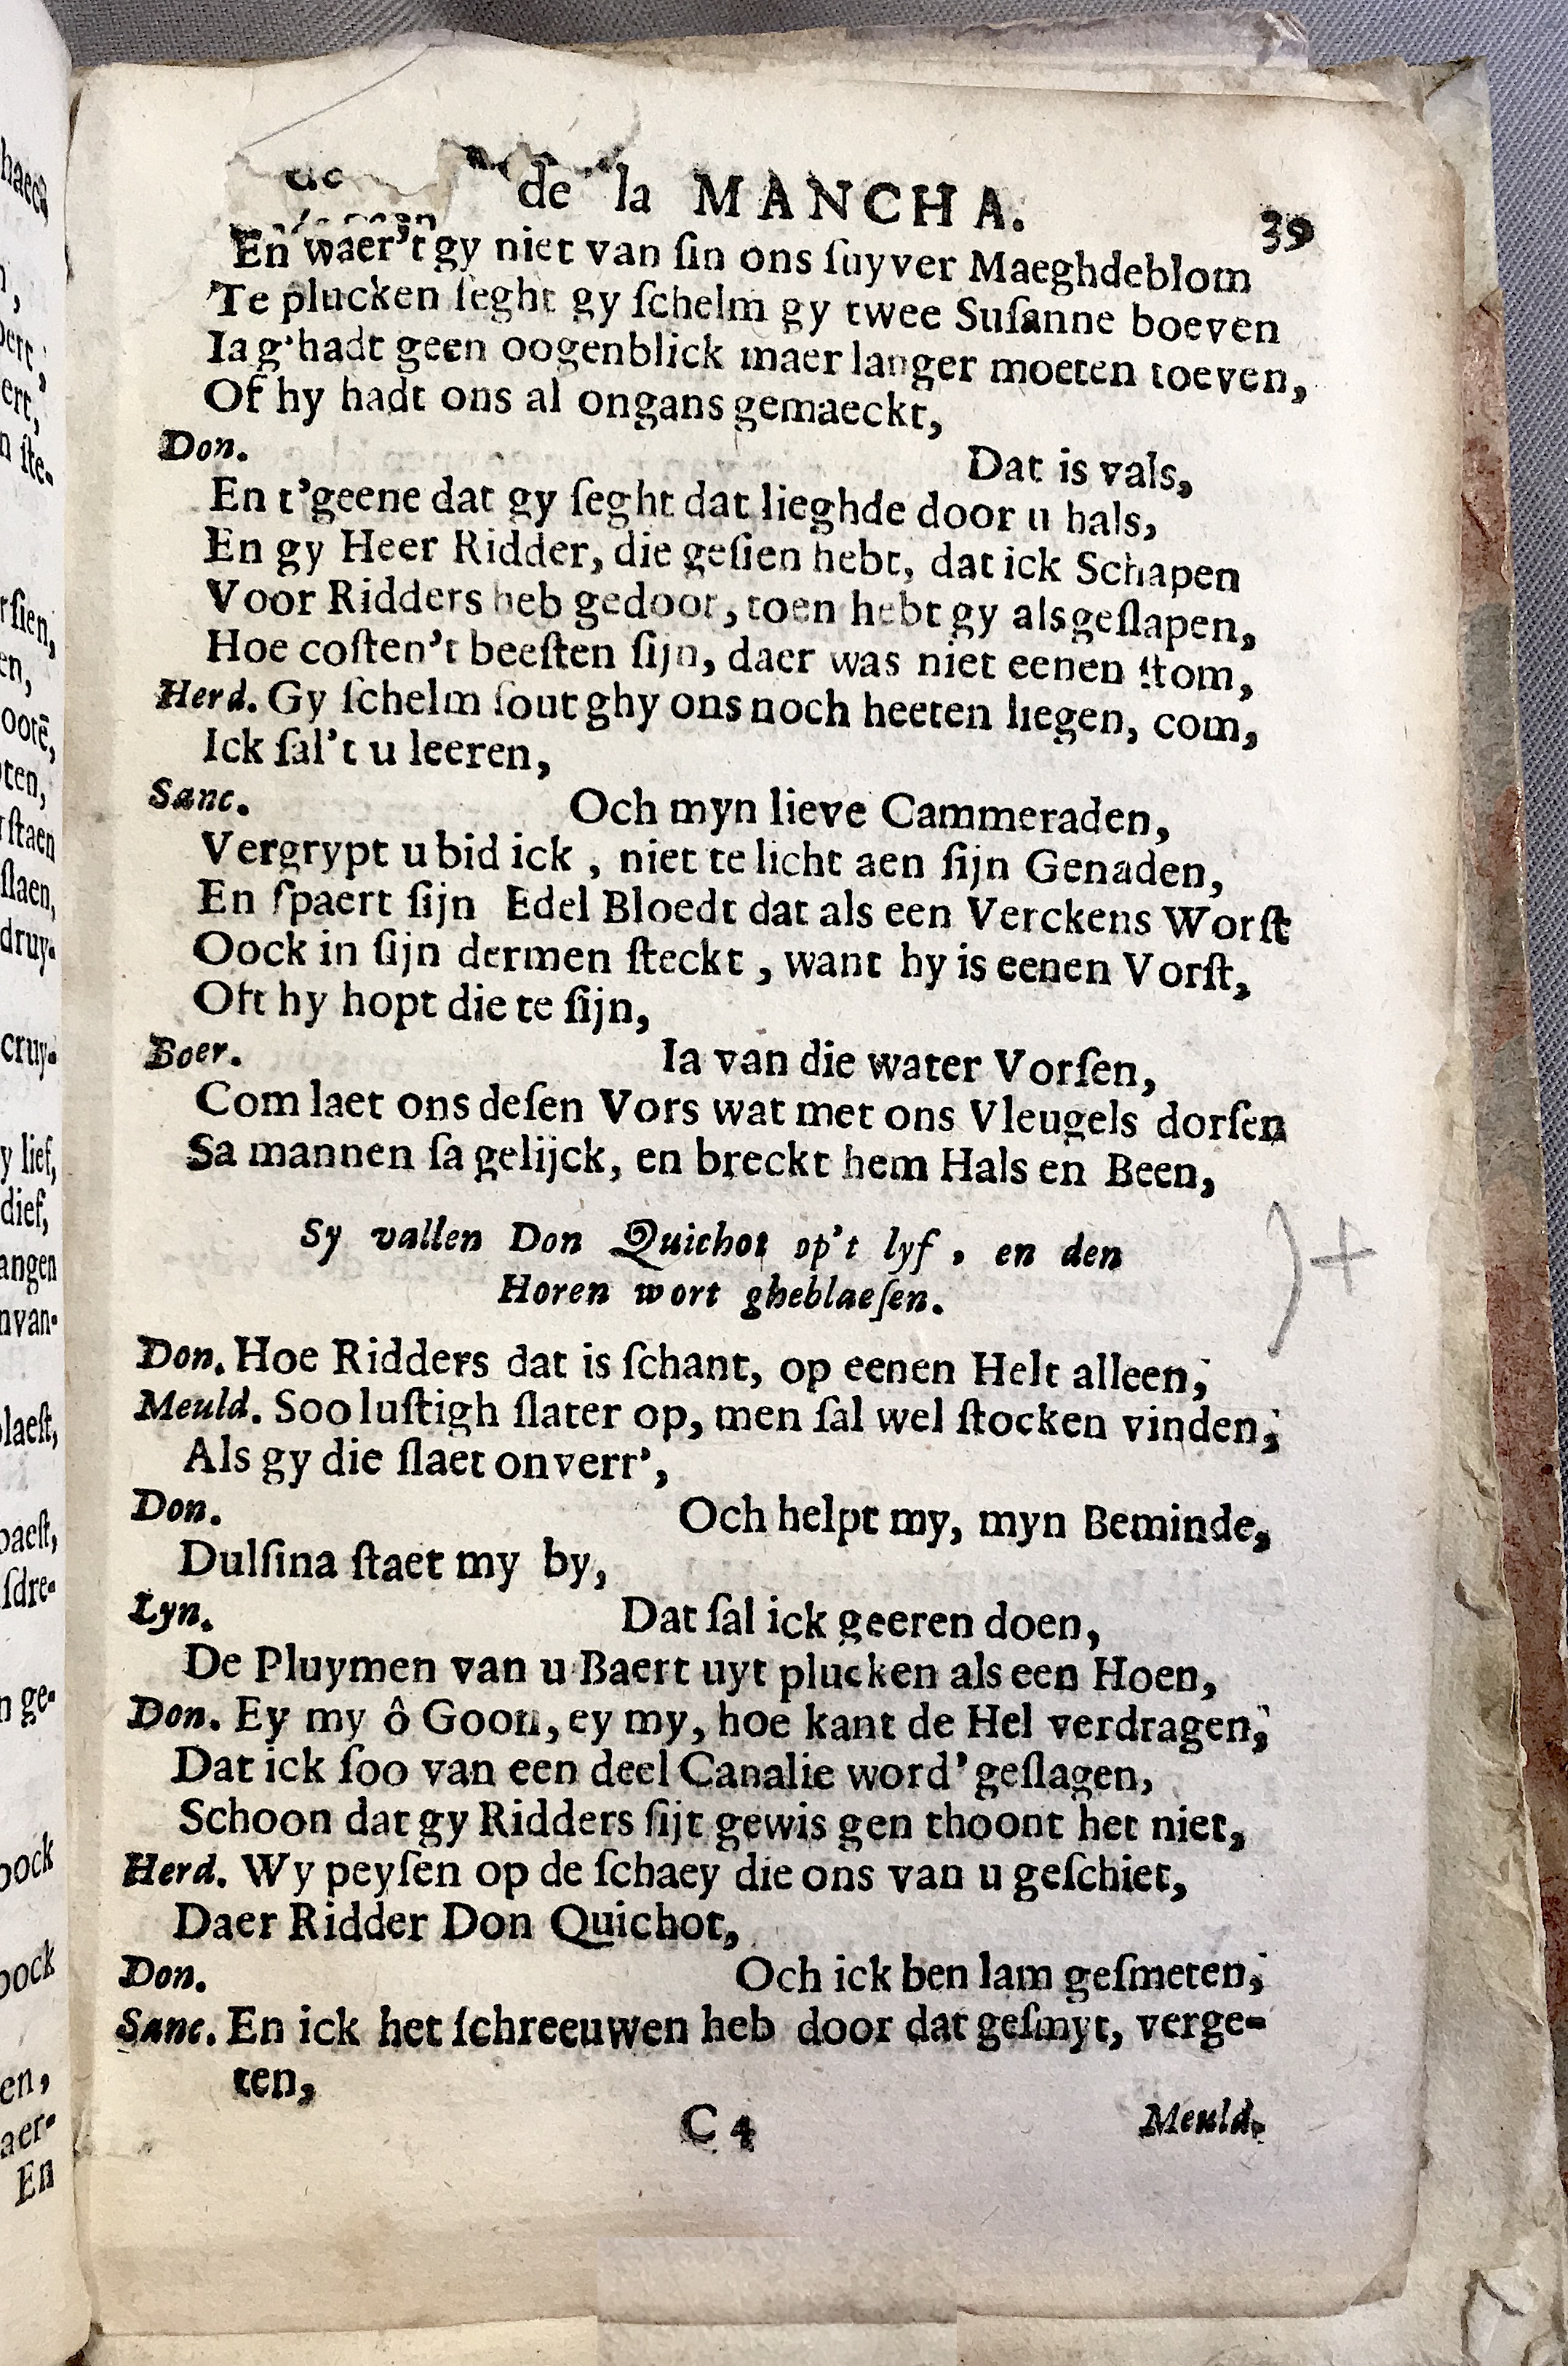 de la MANCHA. 39
En waer't gy niet van ſin ons ſuyver Maeghdeblom
Te plucken ſeght gy ſchelm gy twee Suſanne boeven
Ia g'hadt geen oogenblick maer langer moeten toeven,
Of hy hadt ons al ongans gemaeckt,
Don. Dat is vals,
En t'geene dat gy ſeght dat lieghde door u hals,
En gy Heer Ridder, die geſien hebt, dat ick Schapen
Voor Ridders heb gedoot, toen hebt gy als geſlapen,
Hoe coſten't beeſten ſijn, daer was niet eenen ſtom,
Herd. Gy ſchelm ſout ghy ons noch heeten liegen, com,
Ick ſal't u leeren,
Sanc. Och myn lieve Cammeraden,
Vergrypt u bid ick, niet te licht aen ſijn Genaden,
En ſpaert ſijn Edel Bloedt dat als een Verckens Worſt
Oock in ſijn dermen ſteckt, want hy is eenen Vorſt,
Oft hy hopt die te ſijn,
Boer. Ia van die water Vorſen,
Com laet ons deſen Vors wat met ons Vleugels dorſen
Sa mannen ſa gelijck, en breckt hem Hals en Been,
Sy vallen Don Quichot op't lyf, en den
Horen wort gheblaeſen.
Don. Hoe Ridders dat is ſchant, op eenen Helt alleen,
Meuld. Soo luſtigh ſlater op, men ſal wel ſtocken vinden,
Als gy die ſlaet onverr',
Don. Och helpt my, myn Beminde,
Dulſina ſtaet my by,
Lyn. Dat ſal ick geeren doen,
De Pluymen van u Baert uyt plucken als een Hoen,
Don. Ey my ô Goon, ey my, hoe kant de Hel verdragen,
Dat ick ſoo van een deel Canalie word' geſlagen,
Schoon dat gy Ridders ſijt gewis gen thoont het niet,
Herd. Wy peyſen op de ſchaey die ons van u geſchiet,
Daer Ridder Don Quichot,
Don. Och ick ben lam geſmeten,
Sanc. En ick het ſchreeuwen heb door dat geſmyt, verge-
ten,
C 4 Meuld.